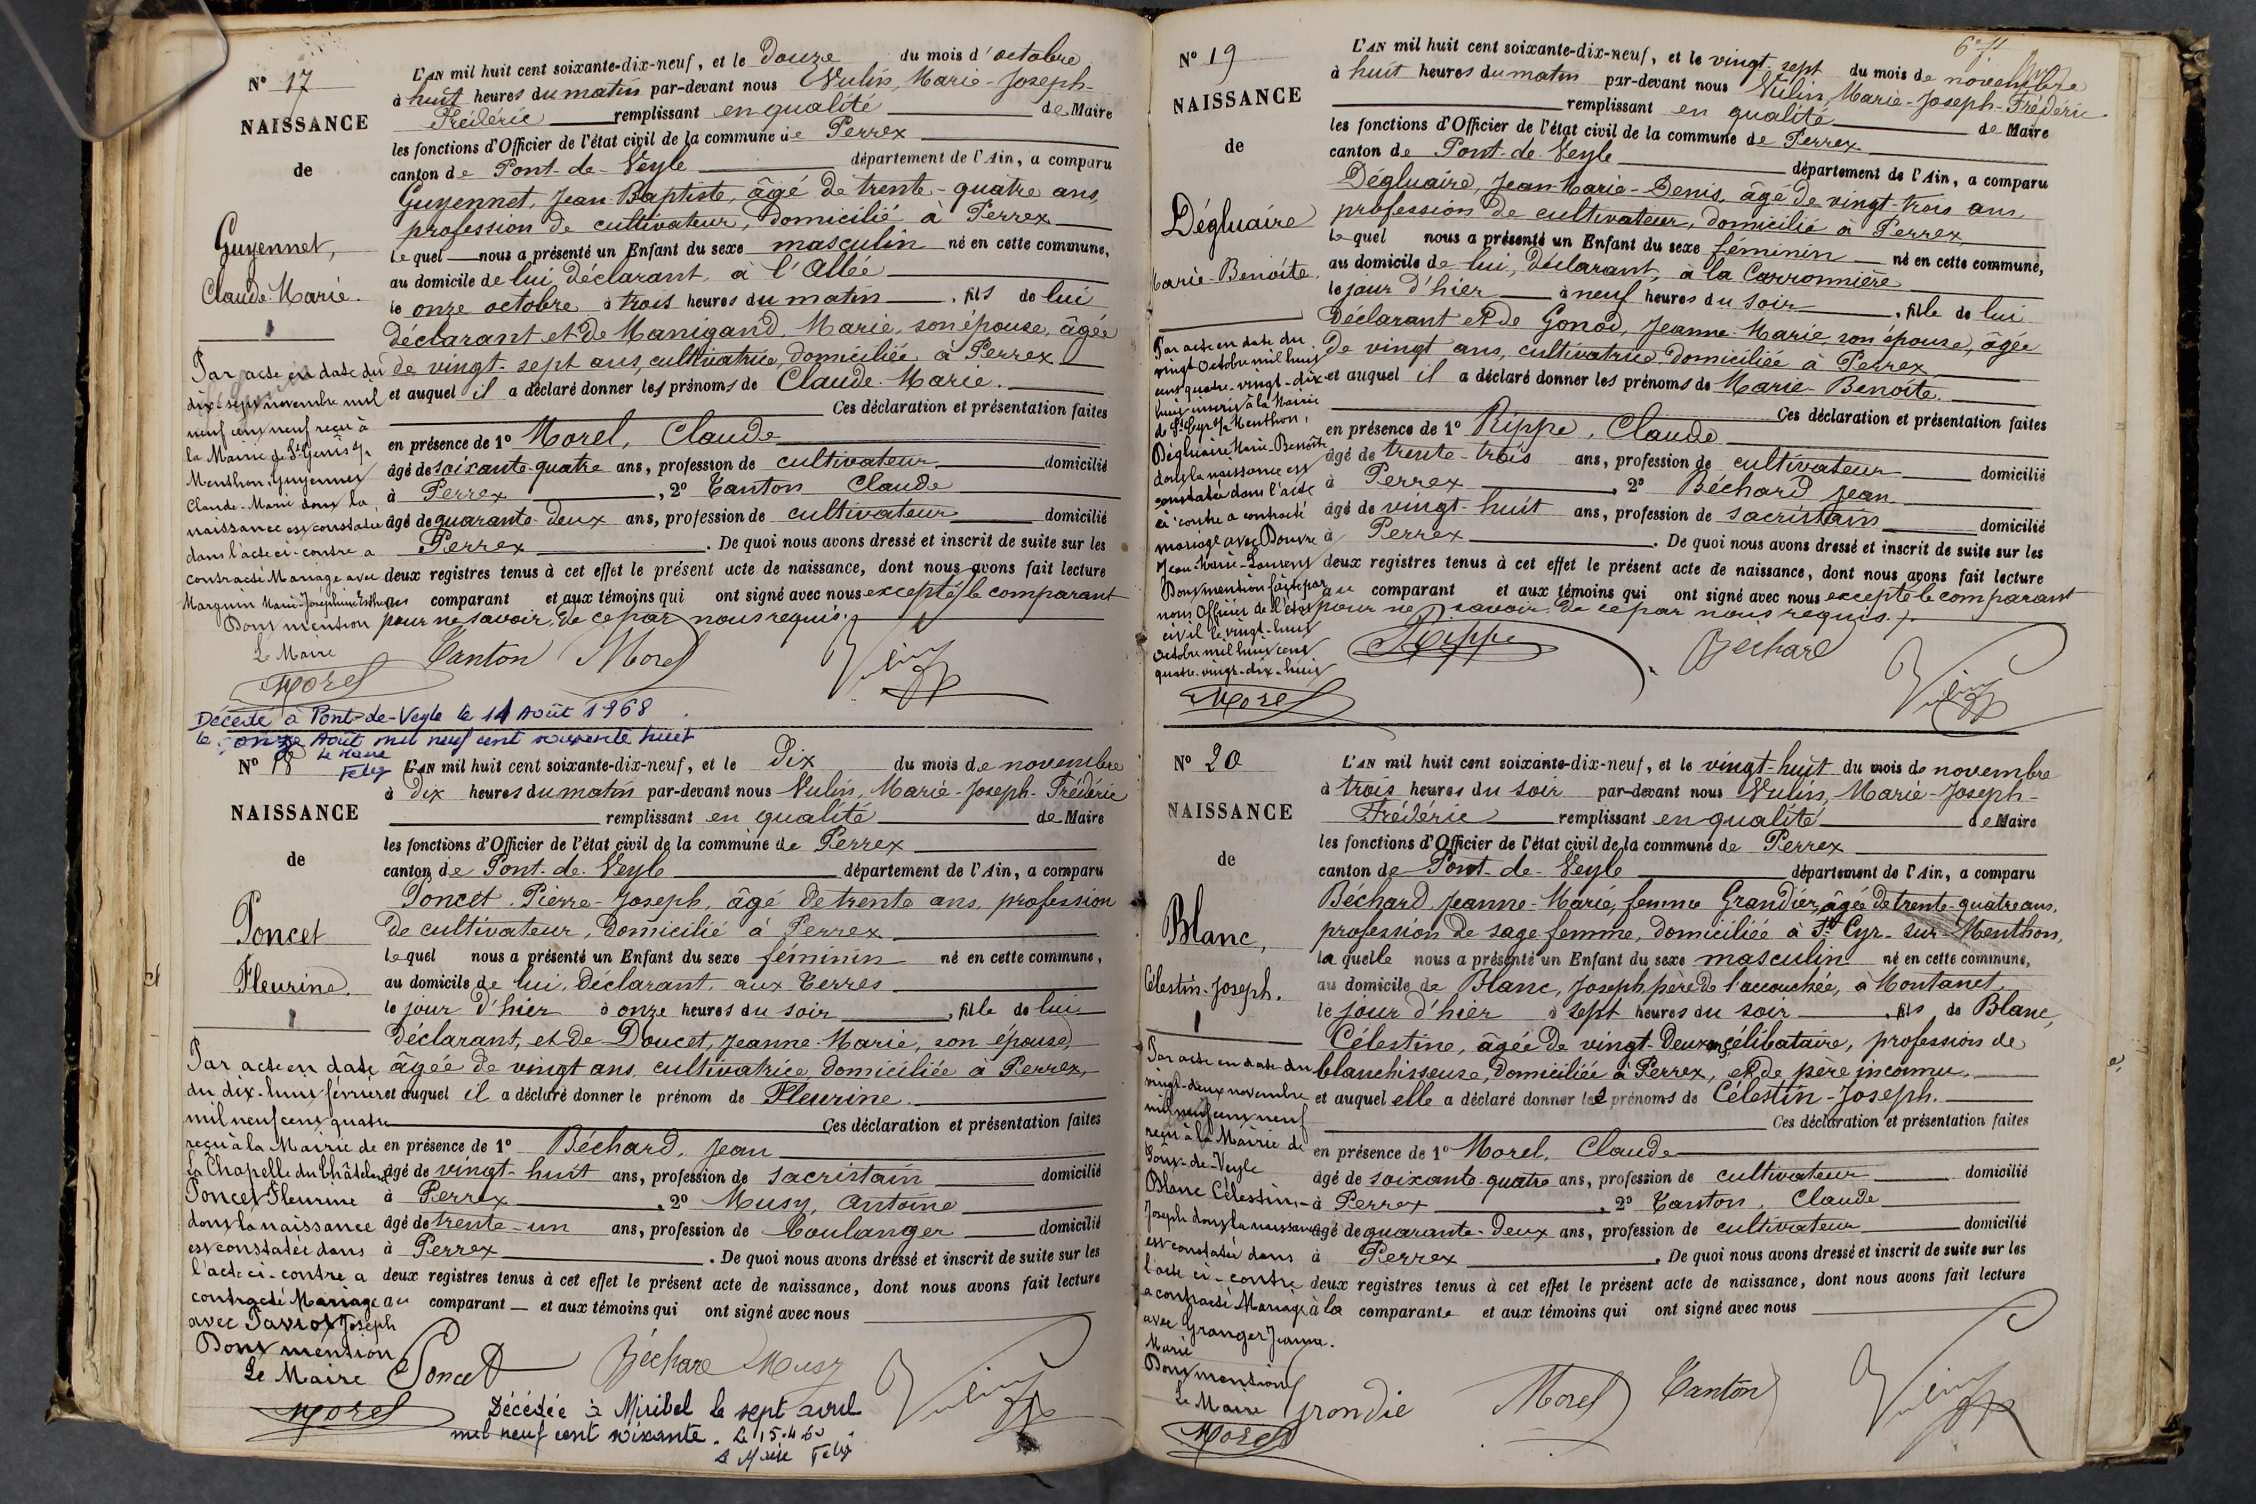 N° 17
NAISSANCE
de
Guyennet,
Claude-Marie.
L'AN mil huit cent soixante-dix-neuf, et le douze du mois d'octobre
à huit heures du matin par-devant nous Vulin, Marie-Joseph-
Frédéric remplissant en qualité de Maire
les fonctions d'Officier de l'état civil de la commune de Perrex
canton de Pont-de-Veyle département de l'Ain, a comparu
Guyennet, Jean-Baptiste, âgé de trente-quatre ans,
profession de cultivateur, domicilié à Perrex
lequel nous a présenté un Enfant du sexe masculin né en cette commune,
au domicile de lui déclarant, à l'Allée
le onze octobre à trois heures du matin, fils de lui
déclarant et de Manigand, Marie, son épouse, âgée
de vingt-sept ans, cultivatrice, domiciliée à Perrex
et auquel il a déclaré donner les prénoms de Claude-Marie.
Ces déclaration et présentation faites
en présence de 1° Morel, Claude
âgé de soixante-quatre ans, profession de cultivateur domicilié
à Perrex, 2° Tanton Claude
âgé de quarante-deux ans, profession de cultivateur domicilié
Perrex. De quoi nous avons dressé et inscrit de suite sur les
deux registres tenus à cet effet le présent acte de naissance, dont nous avons fait lecture
au comparant et aux témoins qui ont signé avec nous excepté le comparant
pour ne savoir, de ce par nous requis.
Tanton Morel Vulin
Par acte en date du
dix-sept novembre mil
neuf cent neuf reçu à
la Mairie de St Genis s/
Menthon, Guyennet
Claude-Marie dont la
naissance est constatée
dans l'acte ci-contre a
contracté Mariage avec
Marguin Marie-Joséphine Esther
Dont mention
Le Maire
Morel
Décédé à Pont-de-Veyle le 11 Août 1968
le onze Août mil neuf cent soixante huit
Le Maire
N° 18
NAISSANCE
de
Poncet
Fleurine.
L'AN mil huit cent soixante-dix-neuf, et le dix du mois de novembre
à dix heures du matin par-devant nous Vulin, Marie-Joseph-Frédéric
remplissant en qualité de Maire
les fonctions d'Officier de l'état civil de la commune de Perrex
canton de Pont-de-Veyle département de l'Ain, a comparu
Poncet, Pierre-Joseph, âgé de trente ans, profession
de cultivateur, domicilié à Perrex
lequel nous a présenté un Enfant du sexe féminin né en cette commune,
au domicile de lui, déclarant, aux Terres
le jour d'hier à onze heures du soir, fille de lui
déclarant, et de Doucet, Jeanne-Marie, son épouse,
âgée de vingt ans, cultivatrice, domiciliée à Perrex,
et auquel il a déclaré donner le prénom de Fleurine.
Ces déclaration et présentation faites
en présence de 1° Béchard, Jean
âgé de vingt-huit ans, profession de sacristain domicilié
à Perrex, 2° Musy, Antoine
âgé de trente-un ans, profession de boulanger domicilié
à Perrex. De quoi nous avons dressé et inscrit de suite sur les
deux registres tenus à cet effet le présent acte de naissance, dont nous avons fait lecture
au comparant et aux témoins qui ont signé avec nous
Poncet Béchard Musy Vulin
Par acte en date
du dix-huit février
mil neuf cent quatre
reçu à la Mairie de
La Chapelle du Châtelard
Poncet Fleurine
dont la naissance
est constatée dans
l'acte ci-contre a
contracté Mariage
avec Joseph
Dont mention
Le Maire
Morel
Décédée à Miribel le sept avril
mil neuf cent soixante. Le 15.4.60
Le Maire
N° 19
NAISSANCE
de
Dégluaire
Marie-Benoîte.
6e f.
L'AN mil huit cent soixante-dix-neuf, et le vingt-sept du mois de novembre
à huit heures du matin par-devant nous Vulin, Marie-Joseph-Frédéric
remplissant en qualité de Maire
les fonctions d'Officier de l'état civil de la commune de Perrex
canton de Pont-de-Veyle département de l'Ain, a comparu
Dégluaire, Jean-Marie-Denis, âgé de vingt-trois ans
profession de cultivateur, domicilié à Perrex,
lequel nous a présenté un Enfant du sexe féminin né en cette commune,
au domicile de lui, déclarant, à la Carronnière
le jour d'hier à neuf heures du soir, fille de lui
déclarant et de Gonod, Jeanne-Marie, son épouse, âgée
de vingt ans, cultivatrice, domiciliée à Perrex
et auquel il a déclaré donner les prénoms de Marie-Benoîte.
Ces déclaration et présentation faites
en présence de 1° Rippe, Claude
âgé de trente-trois ans, profession de cultivateur domicilié
à Perrex, 2° Béchard Jean
âgé de vingt-huit ans, profession de sacristain domicilié
à Perrex. De quoi nous avons dressé et inscrit de suite sur les
deux registres tenus à cet effet le présent acte de naissance, dont nous avons fait lecture
au comparant et aux témoins qui ont signé avec nous excepté le comparant
pour ne savoir, de ce par nous requis.
Rippe Béchard Vulin
Par acte en date du
vingt Octobre mil huit
cent quatre-vingt-dix-
huit inscrit à la Mairie
de St Cyr s/ Menthon,
Dégluaire Marie-Benoîte
dont la naissance est
constatée dans l'acte
ci-contre a contracté
mariage avec Douvre
Jean-Marie-Laurent
Dont mention faite par
nous Officier de l'état
civil le vingt-huit
Octobre mil huit cent
quatre-vingt-dix-huit
Morel
N° 20
NAISSANCE
de
Blanc,
Célestin-Joseph.
L'AN mil huit cent soixante-dix-neuf, et le vingt-huit du mois de novembre
à trois heures du soir par-devant nous Vulin, Marie-Joseph-
Frédéric remplissant en qualité de Maire
les fonctions d'Officier de l'état civil de la commune de Perrex
canton de Pont-de-Veyle département de l'Ain, a comparu
Béchard Jeanne-Marie, femme Grandier, âgée de trente-quatre ans,
profession de sage femme, domiciliée à St Cyr-sur-Menthon,
laquelle nous a présenté un Enfant du sexe masculin né en cette commune,
au domicile de Blanc, Joseph père de l'accouchée, à Montanet,
le jour d'hier à sept heures du soir, fils de Blanc,
Célestine, âgée de vingt-deux ans, célibataire, profession de
blanchisseuse, domiciliée à Perrex, et de père inconnu.
et auquel elle a déclaré donner les prénoms de Célestin-Joseph.
Ces déclaration et présentation faites
en présence de 1° Morel, Claude
âgé de soixante-quatre ans, profession de cultivateur domicilié
à Perrex, 2° Tanton, Claude
âgé de quarante-deux ans, profession de cultivateur domicilié
à Perrex. De quoi nous avons dressé et inscrit de suite sur les
deux registres tenus à cet effet le présent acte de naissance, dont nous avons fait lecture
à la comparante et aux témoins qui ont signé avec nous
Grondie Morel Tanton Vulin
Par acte en date du
vingt-deux novembre
mil neuf cent neuf
reçu à la Mairie de
Pont-de-Veyle
Blanc Célestin-
Joseph dont la naissance
est constatée dans
l'acte ci-contre
a contracté Mariage
avec Granger Jeanne-
Marie
Dont mention
Le Maire
Morel